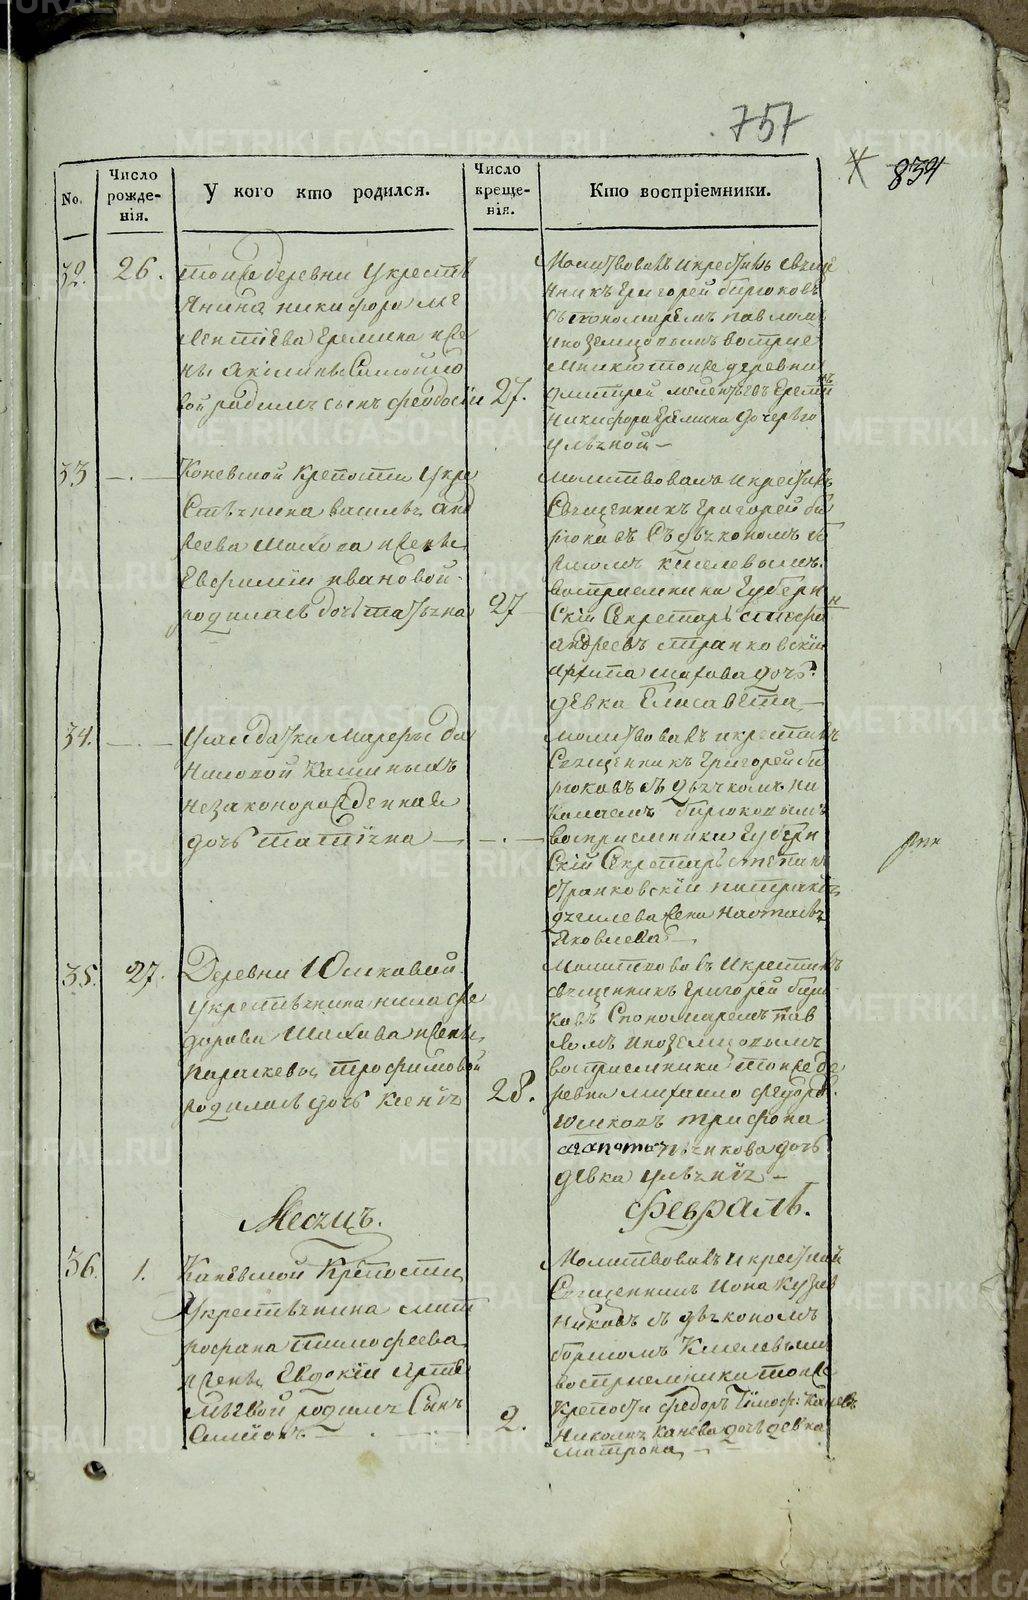 757
834
No.
Число рожде-нія.
У кого кто родился.
Число креще-нія.
Кто воспріемники.
32. 26.
тоиже деревни У крестъ
янина никифора ме
лентіева Еремина же
ны Акилины Самойло
вой родилъ сынъ феодосій
27.
Молитвовалъ и крестилъ свяще
нникъ Григорей бирюковъ
съ пономаремъ павломъ
иноземцовымъ восприе
мники тоиже деревни
дмитрей мелентьевъ Ереми
нъ
Никифора Еремина дочерью
33
Коневской крепости У кре
стьянина василья Анд
реева Шахова жены
Евфиміи ивановой
родилась дочь татьяна
27
молитвовалъ и крестилъ
Священникъ Григорей би
рюковъ Съ дьякономъ б
киселевымъ.
восприемники Губерн
скій Секретарь
андреевъ странковскій
шахова дочь
девка Елисавета
34.
Даниловой
незаконорожденная
дочь татіяна
Молитвовалъ и крестилъ
Священникъ Григорей би
рюковъ съ дьячкомъ ни
колаемъ бирюковымъ
восприемники Губерн
скій Секретарь степанъ
странковскій
жена настасья
Яковлева
35. 27.
Деревни Юшковой
У крестьянина нила фе
дорова Шахова жены
параскевы трофимовой
родилась дочь ксенія
28.
Молитвовалъ И крестилъ
священникъ Григорей бирю
ковъ Спономаремъ пав
ломъ Иноземцовымъ
восприемники тоиже де
ревни михаило федоровъ
Юшковъ трифона
дочь
девка ульянія
Месяцъ.
Февраль.
36. 1.
Каневской Крепости
У крестьянина мит
рофана тимофеева
жены Евдокіи Арте
мьевой родилъ Сынъ
Симеонъ
2.
Молитвовалъ и крестилъ
Священникъ Иона Кузов
никовъ съ дьякономъ
борисомъ Киселевымъ
восприемники тоиже
крепости федоръ Тимоф: Каневъ
Николая Канева дочь девка
матрона